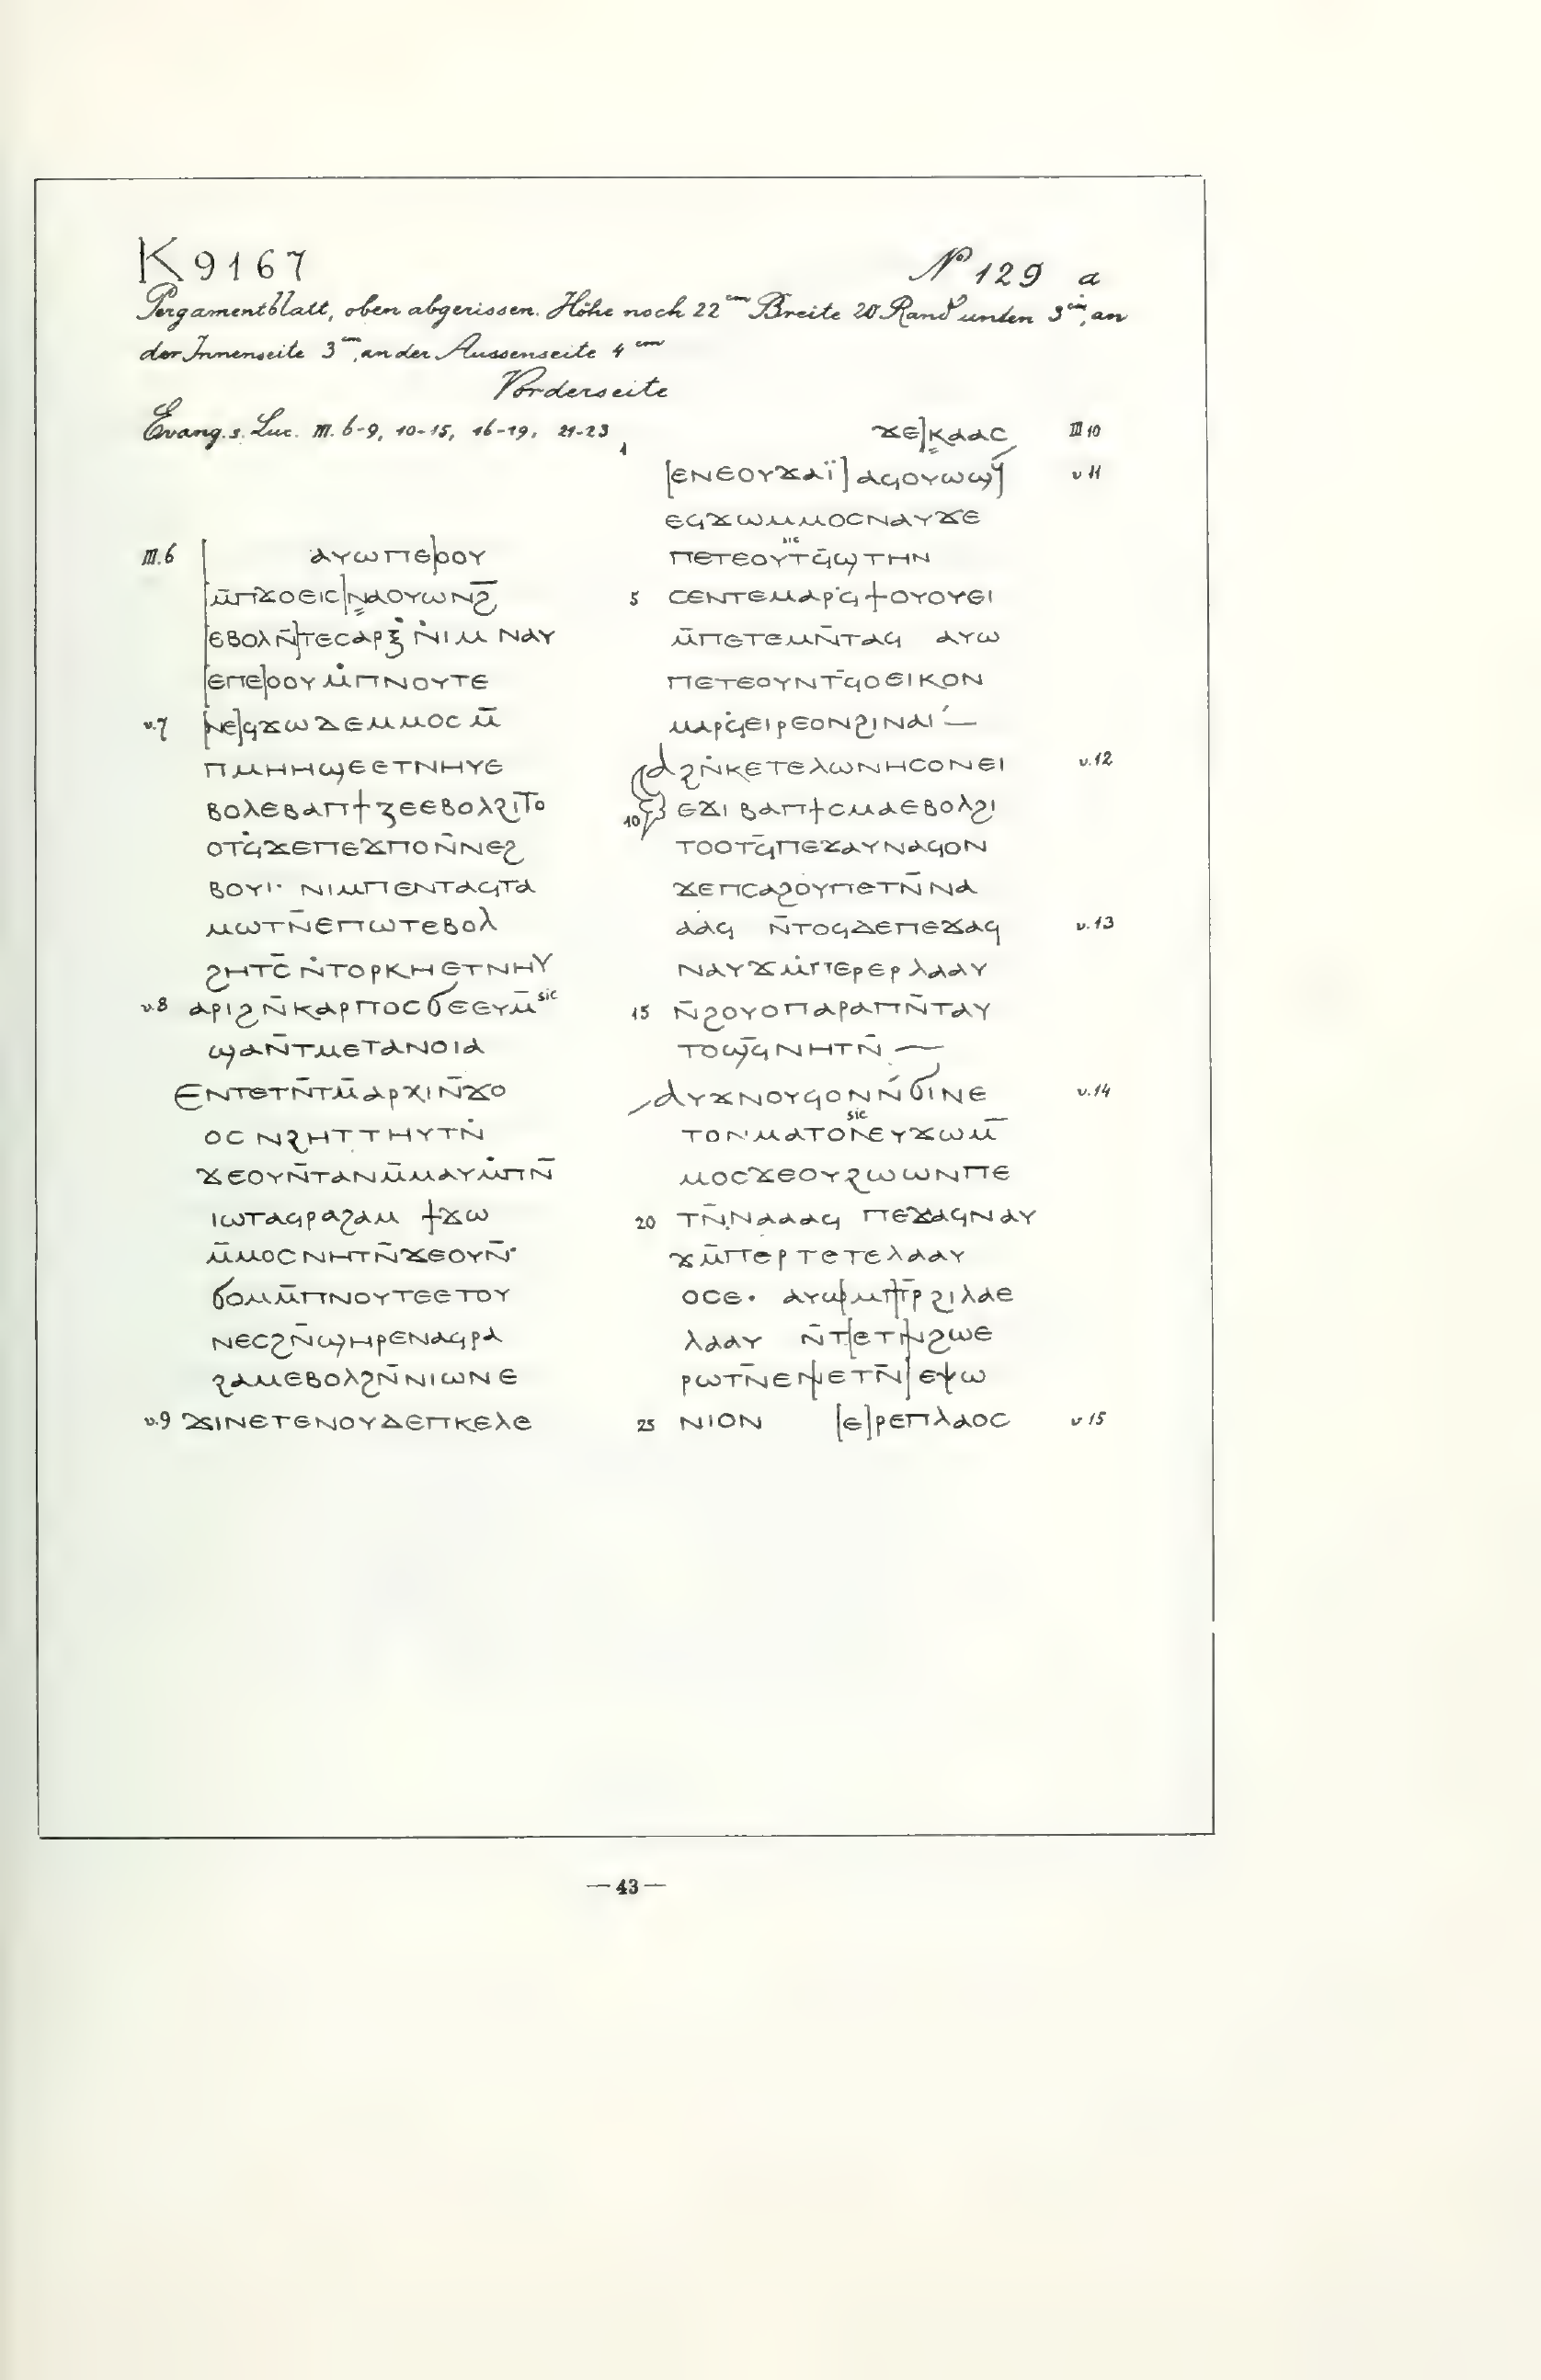 K 9167
Nº 129 a
Pergamentblatt, oben abgerissen. Höhe noch 22 cm Breite 20 Rand unten 3 cm, an
der Innenseite 3 cm, an der Aussenseite 4 cm
Vorderseite
Evang. s. Luc. III. 6-9, 10-15, 16-19, 21-23
III.6 ⲁⲩⲱⲡⲉ]ⲟⲟⲩ
[ⲙ̄ⲡϫⲟⲉⲓⲥ]ⲛⲁⲟⲩⲱⲛϩ̄
[ⲉⲃⲟⲗⲛ̄]ⲧⲉⲥⲁⲣⲝ̇ ⲛ̇ⲓⲙ ⲛⲁⲩ
[ⲉⲡⲉ]ⲟⲟⲩⲙ̇ⲡⲛⲟⲩⲧⲉ
v.7 [ⲛⲉ]ϥϫⲱⲇⲉⲙⲙⲟⲥⲙ̄
ⲡⲙⲏⲏϣⲉⲉⲧⲛⲏⲩⲉ
ⲃⲟⲗⲉⲃⲁⲡϯⲍⲉⲉⲃⲟⲗϩⲓⲧⲟ
ⲟⲧϥ̇ϫⲉⲡⲉϫⲡⲟⲛ̄ⲛⲉϩ
ⲃⲟⲩⲓ· ⲛⲓⲙⲡⲉⲛⲧⲁϥⲧⲁ
ⲙⲱⲧⲛ̄ⲉⲡⲱⲧⲉⲃⲟⲗ
ϩⲏⲧⲥ̄ ⲛ̇ⲧⲟⲣⲅⲏⲉⲧⲛⲏⲩ
v.8 ⲁⲣⲓϩⲛ̄ⲕⲁⲣⲡⲟⲥϭⲉⲉⲩⲙ̄ sic
ϣⲁⲛ̄ⲧⲙⲉⲧⲁⲛⲟⲓⲁ
ⲉⲛⲧⲉⲧⲛ̄ⲧⲙ̄ⲁⲣⲭⲓⲛ̄ϫⲟ
ⲟⲥ ⲛϩⲏⲧⲧⲏⲩⲧⲛ̇
ϫⲉⲟⲩⲛ̄ⲧⲁⲛⲙ̄ⲙⲁⲩⲙ̇ⲡⲛ̄
ⲓⲱⲧⲁϥⲣⲁϩⲁⲙ ϯϫⲱ
ⲙ̄ⲙⲟⲥⲛⲏⲧⲛ̄ϫⲉⲟⲩⲛ̄
ϭⲟⲙⲙ̄ⲡⲛⲟⲩⲧⲉⲉⲧⲟⲩ
ⲛⲉⲥϩⲛ̄ϣⲏⲣⲉⲛⲁϥⲣⲁ
ϩⲁⲙⲉⲃⲟⲗϩⲛ̄ⲛⲓⲱⲛⲉ
v.9 ϫⲓⲛⲉⲧⲉⲛⲟⲩⲇⲉⲡⲕⲉⲗⲉ
1 ϫⲉ]ⲕⲁⲁⲥ III 10
[ⲉⲛⲉⲟⲩϫⲁⲓ̈]ⲁϥⲟⲩⲱϣϥ v 11
ⲉϥϫⲱⲙⲙⲟⲥⲛⲁⲩϫⲉ
sic
ⲡⲉⲧⲉⲟⲩⲧϥ̄ϣⲧⲏⲛ
5 ⲥⲉⲛⲧⲉⲙⲁⲣϥ̇ϯⲟⲩⲟⲩⲉⲓ
ⲙ̄ⲡⲉⲧⲉⲙⲛ̄ⲧⲁϥ ⲁⲩⲱ
ⲡⲉⲧⲉⲟⲩⲛⲧϥ̄ⲟⲉⲓⲕⲟⲛ
ⲙⲁⲣϥ̇ⲉⲓⲣⲉⲟⲛϩⲓⲛⲁⲓ —
ⲁϩⲛ̇ⲕⲉⲧⲉⲗⲱⲛⲏⲥⲟⲛⲉⲓ v.12
10 ⲉϫⲓ ⲃⲁⲡϯⲥⲙⲁⲉⲃⲟⲗϩⲓ
ⲧⲟⲟⲧϥ̄ⲡⲉϫⲁⲩⲛⲁϥⲟⲛ
ϫⲉⲡⲥⲁϩⲟⲩⲡⲉⲧⲛ̄ⲛⲁ
ⲁⲁϥ ⲛ̄ⲧⲟϥⲇⲉⲡⲉϫⲁϥ v.13
ⲛⲁⲩϫⲙ̇ⲡⲉⲣⲉⲣ ⲗⲁⲁⲩ
15 ⲛ̄ϩⲟⲩⲟⲡⲁⲣⲁⲡⲛ̄ⲧⲁⲩ
ⲧⲟϣϥ̄ⲛⲏⲧⲛ̄ —
ⲁⲩϫⲛⲟⲩϥⲟⲛⲛ̄ϭⲓⲛⲉ v.14
sic
ⲧⲟⲛ·ⲙⲁⲧⲟⲛⲉⲩϫⲱⲙ̄
ⲙⲟⲥϫⲉⲟⲩϩⲱⲱⲛⲡⲉ
20 ⲧⲛ̄ⲛⲁⲁⲁϥ ⲡⲉϫⲁϥⲛⲁⲩ
ϫⲙ̄ⲡⲉⲣⲧⲉⲧⲉⲗⲁⲁⲩ
ⲟⲥⲉ· ⲁⲩⲱ[ⲙⲡ]ⲣ̄ϩⲓⲗⲁⲉ
ⲗⲁⲁⲩ ⲛ̄ⲧ[ⲉⲧⲛ]ϩⲱⲉ
ⲣⲱⲧⲛ̄ⲉⲛ[ⲉⲧⲛ̄]ⲉⲯⲱ
25 ⲛⲓⲟⲛ [ⲉ]ⲣⲉⲡⲗⲁⲟⲥ v 15
— 43 —